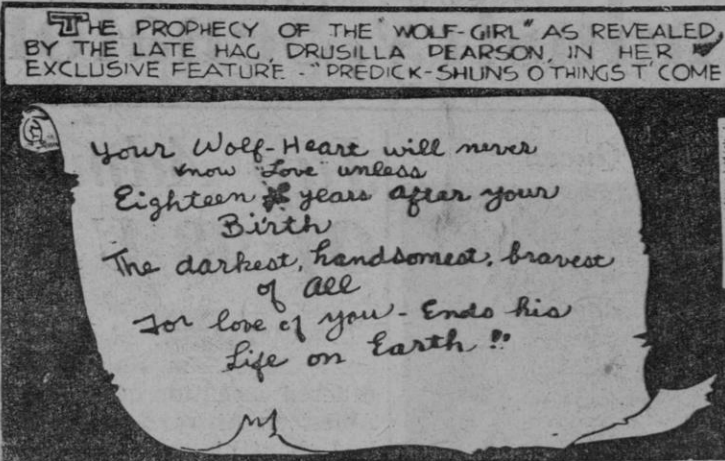 THE PROPHECY OF THE "WOLF-GIRL" AS REVEALED,
BY THE LATE HAG, DRUSILLA PEARSON, IN HER
EXCLUSIVE FEATURE - "PREDICK-SHUNS O THINGS T' COME
Your Wolf-Heart will never
know "Love" unless
Eighteen years after your
Birth
The darkest, handsomest, bravest
of All
For love of you - Ends his
Life on Earth!!